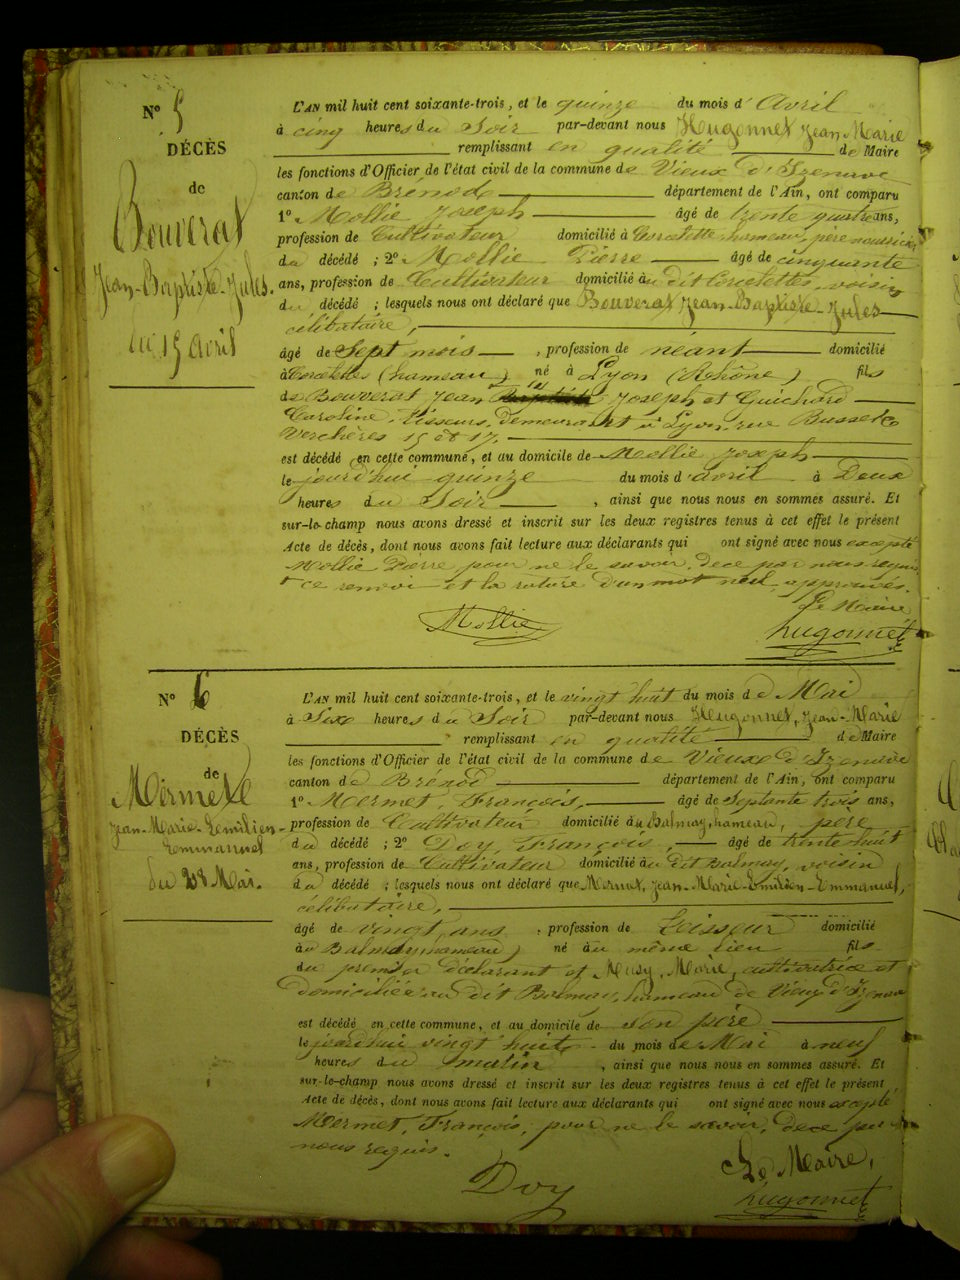 N° 5
DÉCÈS
de
Bouverat
Jean-Baptiste-Jules.
du 15 avril
L'AN mil huit cent soixante-trois, et le quinze du mois d'Avril
à cinq heures du Soir par-devant nous Hugonnet Jean-Marie
remplissant en qualité de Maire
les fonctions d'Officier de l'état civil de la commune de Vieux d'Izenave
canton de Brenod département de l'Ain, ont comparu
1° Mollie Joseph âgé de trente quatre ans,
profession de Cultivateur domicilié à Corcelette, hameau, père nourricier
du décédé ; 2° Mollie Pierre âgé de cinquante
ans, profession de Cultivateur domicilié au dit Corcelettes, voisin
du décédé ; lesquels nous ont déclaré que Bouverat Jean-Baptiste-Jules
célibataire,
âgé de Sept mois , profession de néant domicilié
à Corcelettes (hameau) né à Lyon (Rhône) fils
de Bouverat Jean Joseph et Guichard
Caroline, tisseurs, demeurant à Lyon, rue
Verchères 15 et 17.
est décédé en cette commune, et au domicile de Mollie Joseph
le jourd'hui quinze du mois d'avril à Deux
heures du Soir , ainsi que nous nous en sommes assuré. Et
sur-le-champ nous avons dressé et inscrit sur les deux registres tenus à cet effet le présent
Acte de décès, dont nous avons fait lecture aux déclarants qui ont signé avec nous excepté
Mollie Pierre, pour ne le savoir, de ce par nous requis,
+ ce renvoi et la rature d'un mot nul, approuvés.
Le Maire
Mollie
hugonnet
N° 6
DÉCÈS
de
Mermet
Jean-Marie-Emilien-
Emmanuel
du 28 Mai.
L'AN mil huit cent soixante-trois, et le vingt huit du mois de Mai
à Six heures du Soir par-devant nous Hugonnet, Jean-Marie
remplissant en qualité de Maire
les fonctions d'Officier de l'état civil de la commune de Vieux d'Izenave
canton de Brénod département de l'Ain, ont comparu
1° Mermet, François, âgé de Septante trois ans,
profession de Cultivateur domicilié au Balmay, hameau, père
du décédé ; 2° Doy, François, âgé de trente huit
ans, profession de Cultivateur domicilié au dit Balmay, voisin
du décédé ; lesquels nous ont déclaré que Mermet, Jean-Marie-Emilien-Emmanuel,
célibataire,
âgé de vingt ans , profession de domicilié
au Balmay (hameau) né au même lieu fils
du premier déclarant et Musy, Marie, cultivatrice et
domiciliée au dit Balmay, hameau de Vieux d'Izenave
est décédé en cette commune, et au domicile de son père
le jourd'hui vingt huit du mois de Mai à neuf
heures du matin , ainsi que nous nous en sommes assuré. Et
sur-le-champ nous avons dressé et inscrit sur les deux registres tenus à cet effet le présent
Acte de décès, dont nous avons fait lecture aux déclarants qui ont signé avec nous excepté
Mermet, François, pour ne le savoir, de ce par
nous requis.
Le Maire,
Doy
hugonnet